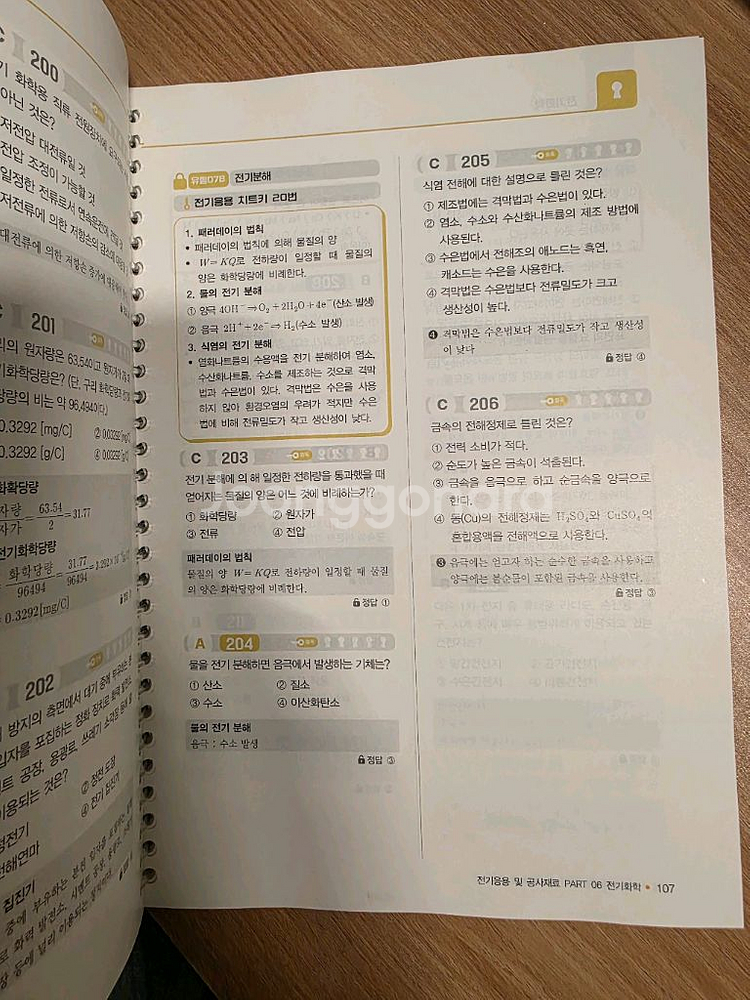 C 200
기 화학용 직류 전원장치에
아닌 것은?
저전압 대전류일 것
전압 조정이 가능할 것
일정한 전류로서 연속운전에 견딜 것
C 201
리의 원자량은 63.54이고 원자가가
기화학당량은? (단, 구리 화학당량과
당량의 비는 약 96,494이다.)
0.3292 [mg/C]
0.3292 [g/C]
화학당량
63.54
2
= 31.77
전기화학당량
화학당량
96494
31.77
96494
= 0.3292[mg/C]
202
방지의 측면에서 대기 중에
입자를 포집하는 정화 장치로
트 공장, 용광로, 쓰레기 소각장
이용되는 것은?
② 정전 도장
④ 전기 집진기
성전기
전해연마
집진기
유형078 전기분해
전기응용 치트키 20번
1. 패러데이의 법칙
• 패러데이의 법칙에 의해 물질의 양
• W=KQ로 전하량이 일정할 때 물질의
양은 화학당량에 비례한다.
2. 물의 전기 분해
① 양극 4OH⁻→O₂+2H₂O+4e⁻(산소 발생)
② 음극 2H⁺+2e⁻→H₂(수소 발생)
3. 식염의 전기 분해
• 염화나트륨의 수용액을 전기 분해하여 염소,
수산화나트륨, 수소를 제조하는 것으로 격막
법과 수은법이 있다. 격막법은 수은을 사용
하지 않아 환경오염의 우려가 적지만 수은
법에 비해 전류밀도가 작고 생산성이 낮다.
C 203
전기 분해에 의해 일정한 전하량을 통과했을 때
얻어지는 물질의 양은 어느 것에 비례하는가?
① 화학당량 ② 원자가
③ 전류 ④ 전압
패러데이의 법칙
물질의 양 W=KQ로 전하량이 일정할 때 물질
의 양은 화학당량에 비례한다.
정답 ①
A 204
물을 전기 분해하면 음극에서 발생하는 기체는?
① 산소 ② 질소
③ 수소 ④ 이산화탄소
물의 전기 분해
음극 : 수소 발생
정답 ③
C 205
식염 전해에 대한 설명으로 틀린 것은?
① 제조법에는 격막법과 수은법이 있다.
② 염소, 수소와 수산화나트륨의 제조 방법에
사용된다.
③ 수은법에서 전해조의 애노드는 흑연,
캐소드는 수은을 사용한다.
④ 격막법은 수은법보다 전류밀도가 크고
생산성이 높다.
❹ 격막법은 수은법보다 전류밀도가 작고 생산성
이 낮다
정답 ④
C 206
금속의 전해정제로 틀린 것은?
① 전력 소비가 적다.
② 순도가 높은 금속이 석출된다.
③ 금속을 음극으로 하고 순금속을 양극으로
한다.
④ 동(Cu)의 전해정제는 H₂SO₄와 CuSO₄의
혼합용액을 전해액으로 사용한다.
❸ 음극에는 얻고자 하는 순수한 금속을 사용하고
양극에는 불순물이 포함된 금속을 사용한다.
정답 ③
전기응용 및 공사재료 PART 06 전기화학 • 107